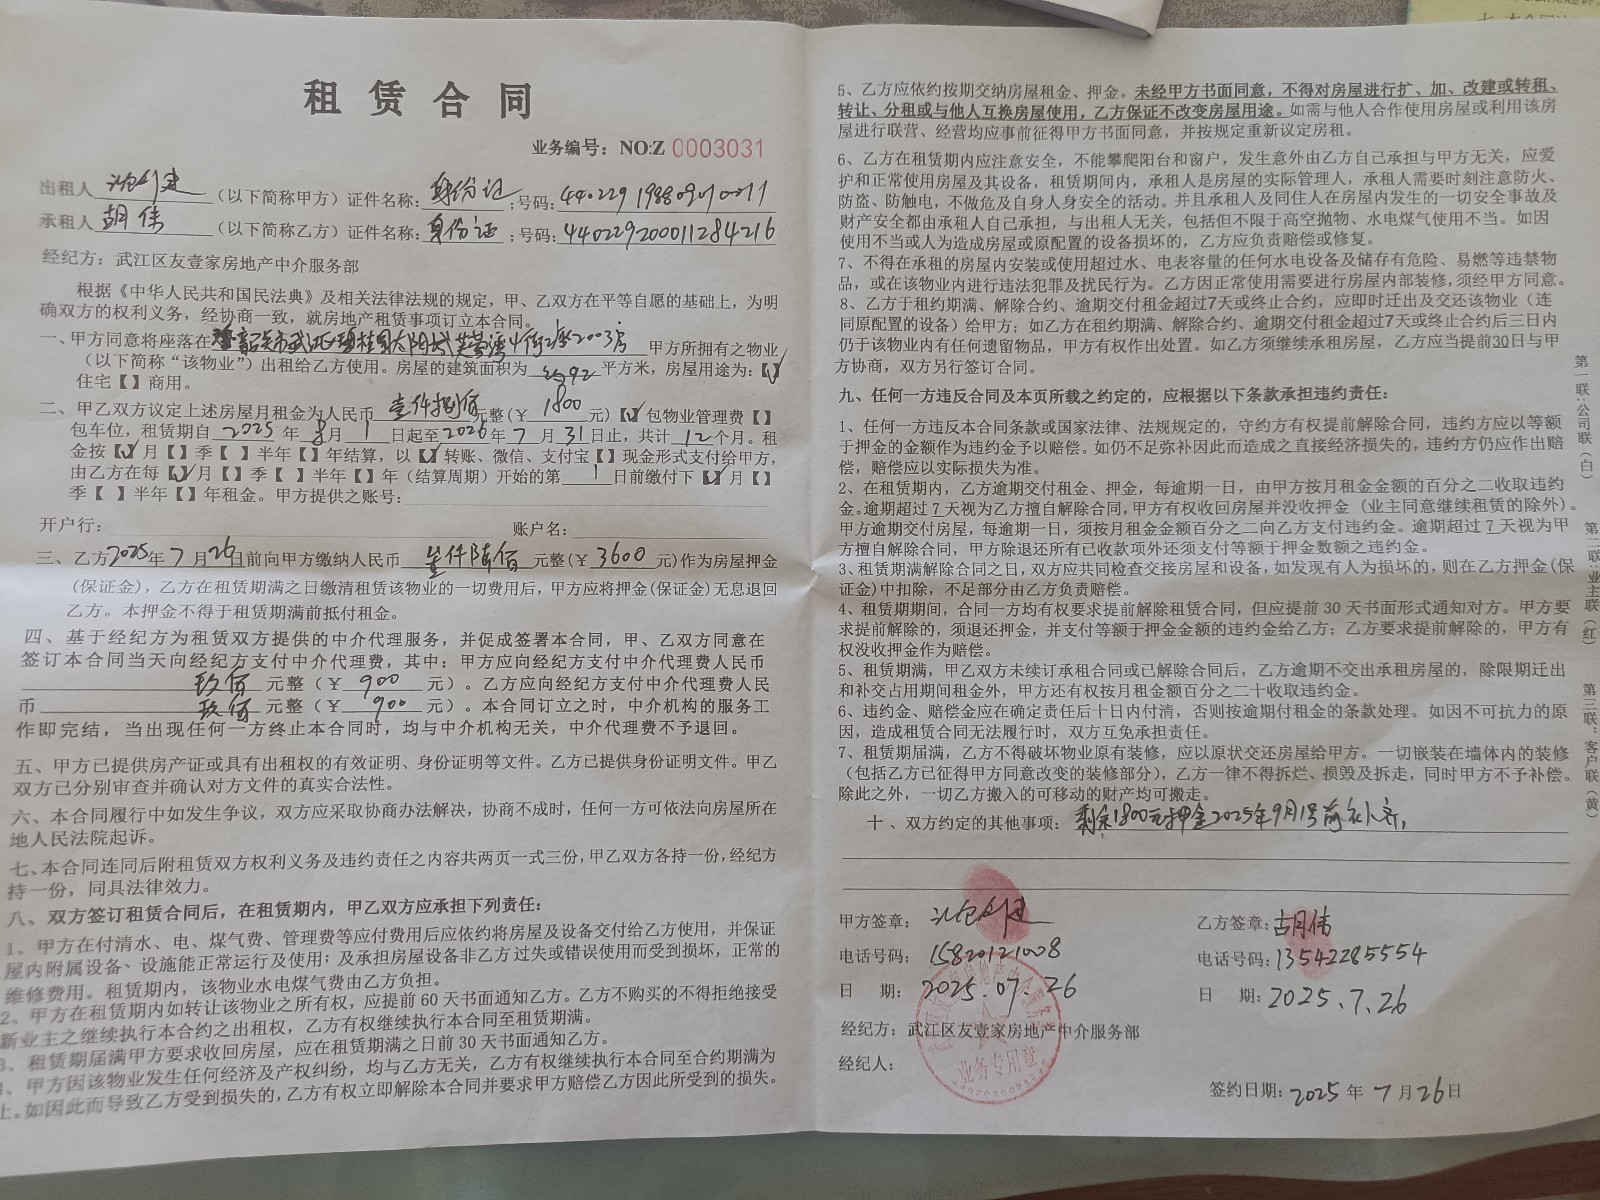 租赁合同
业务编号：NO:Z 0003031
出租人 （以下简称甲方）证件名称：身份证；号码：440229198809010011
承租人 胡伟（以下简称乙方）证件名称：身份证；号码：440229200011284216
经纪方：武江区友壹家房地产中介服务部
根据《中华人民共和国民法典》及相关法律法规的规定，甲、乙双方在平等自愿的基础上，为明
确双方的权利义务，经协商一致，就房地产租赁事项订立本合同。
一、甲方同意将座落在 韶关市武江区碧桂园太阳城芙蓉湾 2003房 甲方所拥有之物业
（以下简称“该物业”）出租给乙方使用。房屋的建筑面积为 约92 平方米，房屋用途为：【√】
住宅【】商用。
二、甲乙双方议定上述房屋月租金为人民币 壹仟捌佰 元整（￥ 1800 元）【√】包物业管理费【】
包车位，租赁期自 2025 年 8 月 1 日起至 2026 年 7 月 31 日止，共计 12 个月。租
金按【√】月【】季【】半年【】年结算，以【√】转账、微信、支付宝【】现金形式支付给甲方，
由乙方在每【√】月【】季【】半年【】年（结算周期）开始的第 1 日前缴付下【√】月【】
季【】半年【】年租金。甲方提供之账号：
开户行： 账户名：
三、乙方 2025 年 7 月 26 日前向甲方缴纳人民币 叁仟陆佰 元整（￥ 3600 元）作为房屋押金
（保证金），乙方在租赁期满之日缴清租赁该物业的一切费用后，甲方应将押金（保证金）无息退回
乙方。本押金不得于租赁期满前抵付租金。
四、基于经纪方为租赁双方提供的中介代理服务，并促成签署本合同，甲、乙双方同意在
签订本合同当天向经纪方支付中介代理费，其中：甲方应向经纪方支付中介代理费人民币
玖佰 元整（￥ 900 元）。乙方应向经纪方支付中介代理费人民
币 玖佰 元整（￥ 900 元）。本合同订立之时，中介机构的服务工
作即完结，当出现任何一方终止本合同时，均与中介机构无关，中介代理费不予退回。
五、甲方已提供房产证或具有出租权的有效证明、身份证明等文件。乙方已提供身份证明文件。甲乙
双方已分别审查并确认对方文件的真实合法性。
六、本合同履行中如发生争议，双方应采取协商办法解决，协商不成时，任何一方可依法向房屋所在
地人民法院起诉。
七、本合同连同后附租赁双方权利义务及违约责任之内容共两页一式三份，甲乙双方各持一份，经纪方
持一份，同具法律效力。
八、双方签订租赁合同后，在租赁期内，甲乙双方应承担下列责任：
1、甲方在付清水、电、煤气费、管理费等应付费用后应依约将房屋及设备交付给乙方使用，并保证
屋内附属设备、设施能正常运行及使用；及承担房屋设备非乙方过失或错误使用而受到损坏，正常的
维修费用。租赁期内，该物业水电煤气费由乙方负担。
2、甲方在租赁期内如转让该物业之所有权，应提前 60 天书面通知乙方。乙方不购买的不得拒绝接受
新业主之继续执行本合约之出租权，乙方有权继续执行本合同至租赁期满。
3、租赁期届满甲方要求收回房屋，应在租赁期满之日前 30 天书面通知乙方。
4、甲方因该物业发生任何经济及产权纠纷，均与乙方无关，乙方有权继续执行本合同至合约期满为
止。如因此而导致乙方受到损失的，乙方有权立即解除本合同并要求甲方赔偿乙方因此所受到的损失。
5、乙方应依约按期交纳房屋租金、押金。未经甲方书面同意，不得对房屋进行扩、加、改建或转租、
转让、分租或与他人互换房屋使用，乙方保证不改变房屋用途。如需与他人合作使用房屋或利用该房
屋进行联营、经营均应事前征得甲方书面同意，并按规定重新议定房租。
6、乙方在租赁期内应注意安全，不能攀爬阳台和窗户，发生意外由乙方自己承担与甲方无关，应爱
护和正常使用房屋及其设备，租赁期间内，承租人是房屋的实际管理人，承租人需要时刻注意防火、
防盗、防触电，不做危及自身人身安全的活动。并且承租人及同住人在房屋内发生的一切安全事故及
财产安全都由承租人自己承担，与出租人无关，包括但不限于高空抛物、水电煤气使用不当。如因
使用不当或人为造成房屋或原配置的设备损坏的，乙方应负责赔偿或修复。
7、不得在承租的房屋内安装或使用超过水、电表容量的任何水电设备及储存有危险、易燃等违禁物
品，或在该物业内进行违法犯罪及扰民行为。乙方因正常使用需要进行房屋内部装修，须经甲方同意。
8、乙方于租约期满、解除合约、逾期交付租金超过7天或终止合约，应即时迁出及交还该物业（连
同原配置的设备）给甲方；如乙方在租约期满、解除合约、逾期交付租金超过7天或终止合约后三日内
仍于该物业内有任何遗留物品，甲方有权作出处置。如乙方须继续承租房屋，乙方应当提前30日与甲
方协商，双方另行签订合同。
九、任何一方违反合同及本页所载之约定的，应根据以下条款承担违约责任：
1、任何一方违反本合同条款或国家法律、法规规定的，守约方有权提前解除合同，违约方应以等额
于押金的金额作为违约金予以赔偿。如仍不足弥补因此而造成之直接经济损失的，违约方仍应作出赔
偿，赔偿应以实际损失为准。
2、在租赁期内，乙方逾期交付租金、押金，每逾期一日，由甲方按月租金金额的百分之二收取违约
金。逾期超过 7 天视为乙方擅自解除合同，甲方有权收回房屋并没收押金（业主同意继续租赁的除外）。
甲方逾期交付房屋，每逾期一日，须按月租金金额百分之二向乙方支付违约金。逾期超过 7 天视为甲
方擅自解除合同，甲方除退还所有已收款项外还须支付等额于押金数额之违约金。
3、租赁期满解除合同之日，双方应共同检查交接房屋和设备，如发现有人为损坏的，则在乙方押金（保
证金）中扣除，不足部分由乙方负责赔偿。
4、租赁期期间，合同一方均有权要求提前解除租赁合同，但应提前 30 天书面形式通知对方。甲方要
求提前解除的，须退还押金，并支付等额于押金金额的违约金给乙方；乙方要求提前解除的，甲方有
权没收押金作为赔偿。
5、租赁期满，甲乙双方未续订承租合同或已解除合同后，乙方逾期不交出承租房屋的，除限期迁出
和补交占用期间租金外，甲方还有权按月租金额百分之二十收取违约金。
6、违约金、赔偿金应在确定责任后十日内付清，否则按逾期付租金的条款处理。如因不可抗力的原
因，造成租赁合同无法履行时，双方互免承担责任。
7、租赁期届满，乙方不得破坏物业原有装修，应以原状交还房屋给甲方。一切嵌装在墙体内的装修
（包括乙方已征得甲方同意改变的装修部分），乙方一律不得拆烂、损毁及拆走，同时甲方不予补偿。
除此之外，一切乙方搬入的可移动的财产均可搬走。
十、双方约定的其他事项：剩余1800元押金2025年9月1号前补齐，
甲方签章： 乙方签章：胡伟
电话号码：15820121008 电话号码：13542285554
日 期：2025.07.26 日 期：2025.7.26
经纪方：武江区友壹家房地产中介服务部
经纪人：
业务专用章
签约日期：2025 年 7 月 26 日
第一联：公司联（白）
第二联：业主联（红）
第三联：客户联（黄）